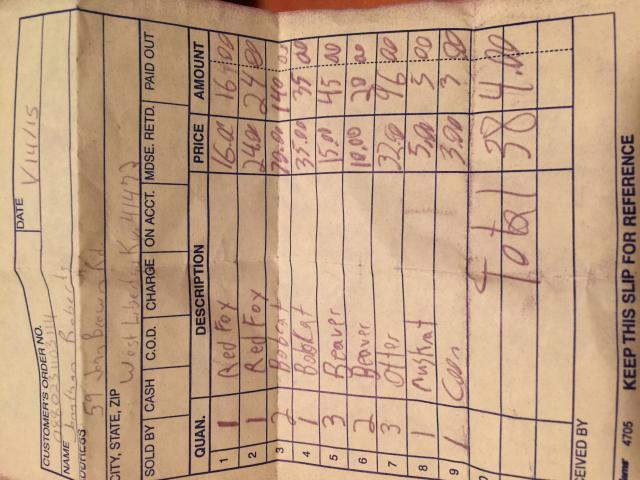 CUSTOMER'S ORDER NO.
DATE 1/14/15
NAME Roberts
ADDRESS 59 John Brown Rd.
CITY, STATE, ZIP West Liberty Ky. 41472
SOLD BY CASH C.O.D. CHARGE ON ACCT. MDSE. RETD. PAID OUT
QUAN. DESCRIPTION PRICE AMOUNT
1 1 Red Fox 16.00 16.00
2 1 Red Fox 24.00 24.00
3 2 Bobcat 70.00 140.00
4 1 Bobcat 35.00 35.00
5 3 Beaver 15.00 45.00
6 2 Beaver 10.00 20.00
7 3 Otter 32.00 96.00
8 1 Muskrat 5.00 5.00
9 1 Coon 3.00 3.00
Total 384.00
4705 KEEP THIS SLIP FOR REFERENCE